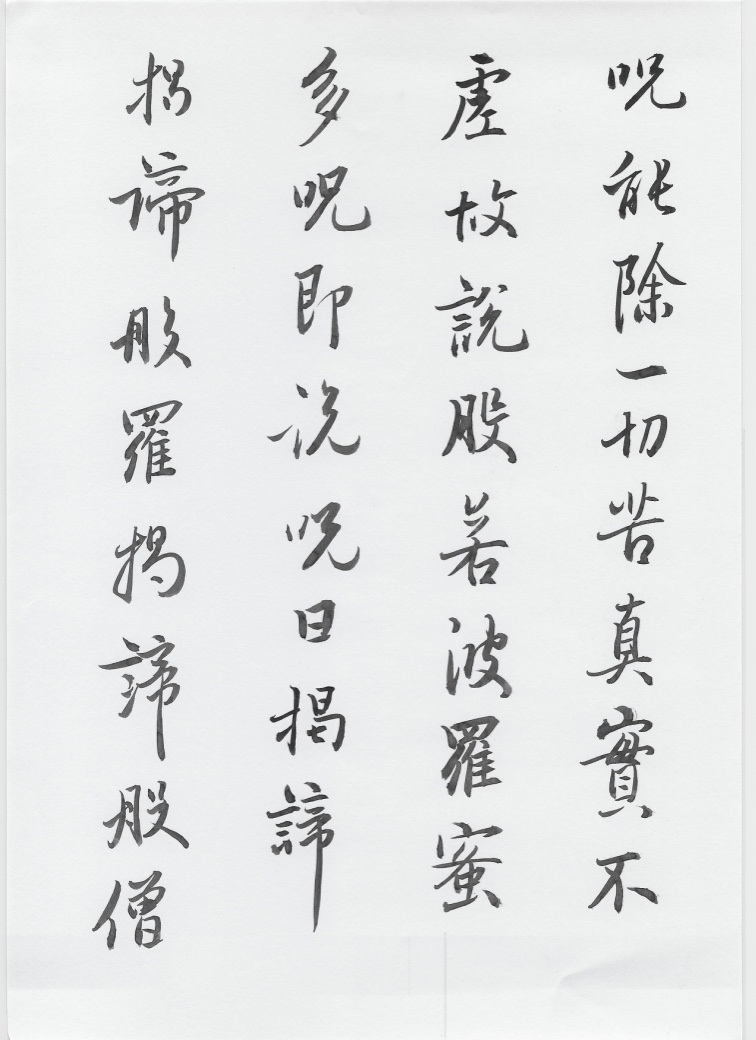 呪能除一切苦真實不
虛故說般若波羅蜜
多呪即說呪曰揭諦
揭諦般羅揭諦般僧